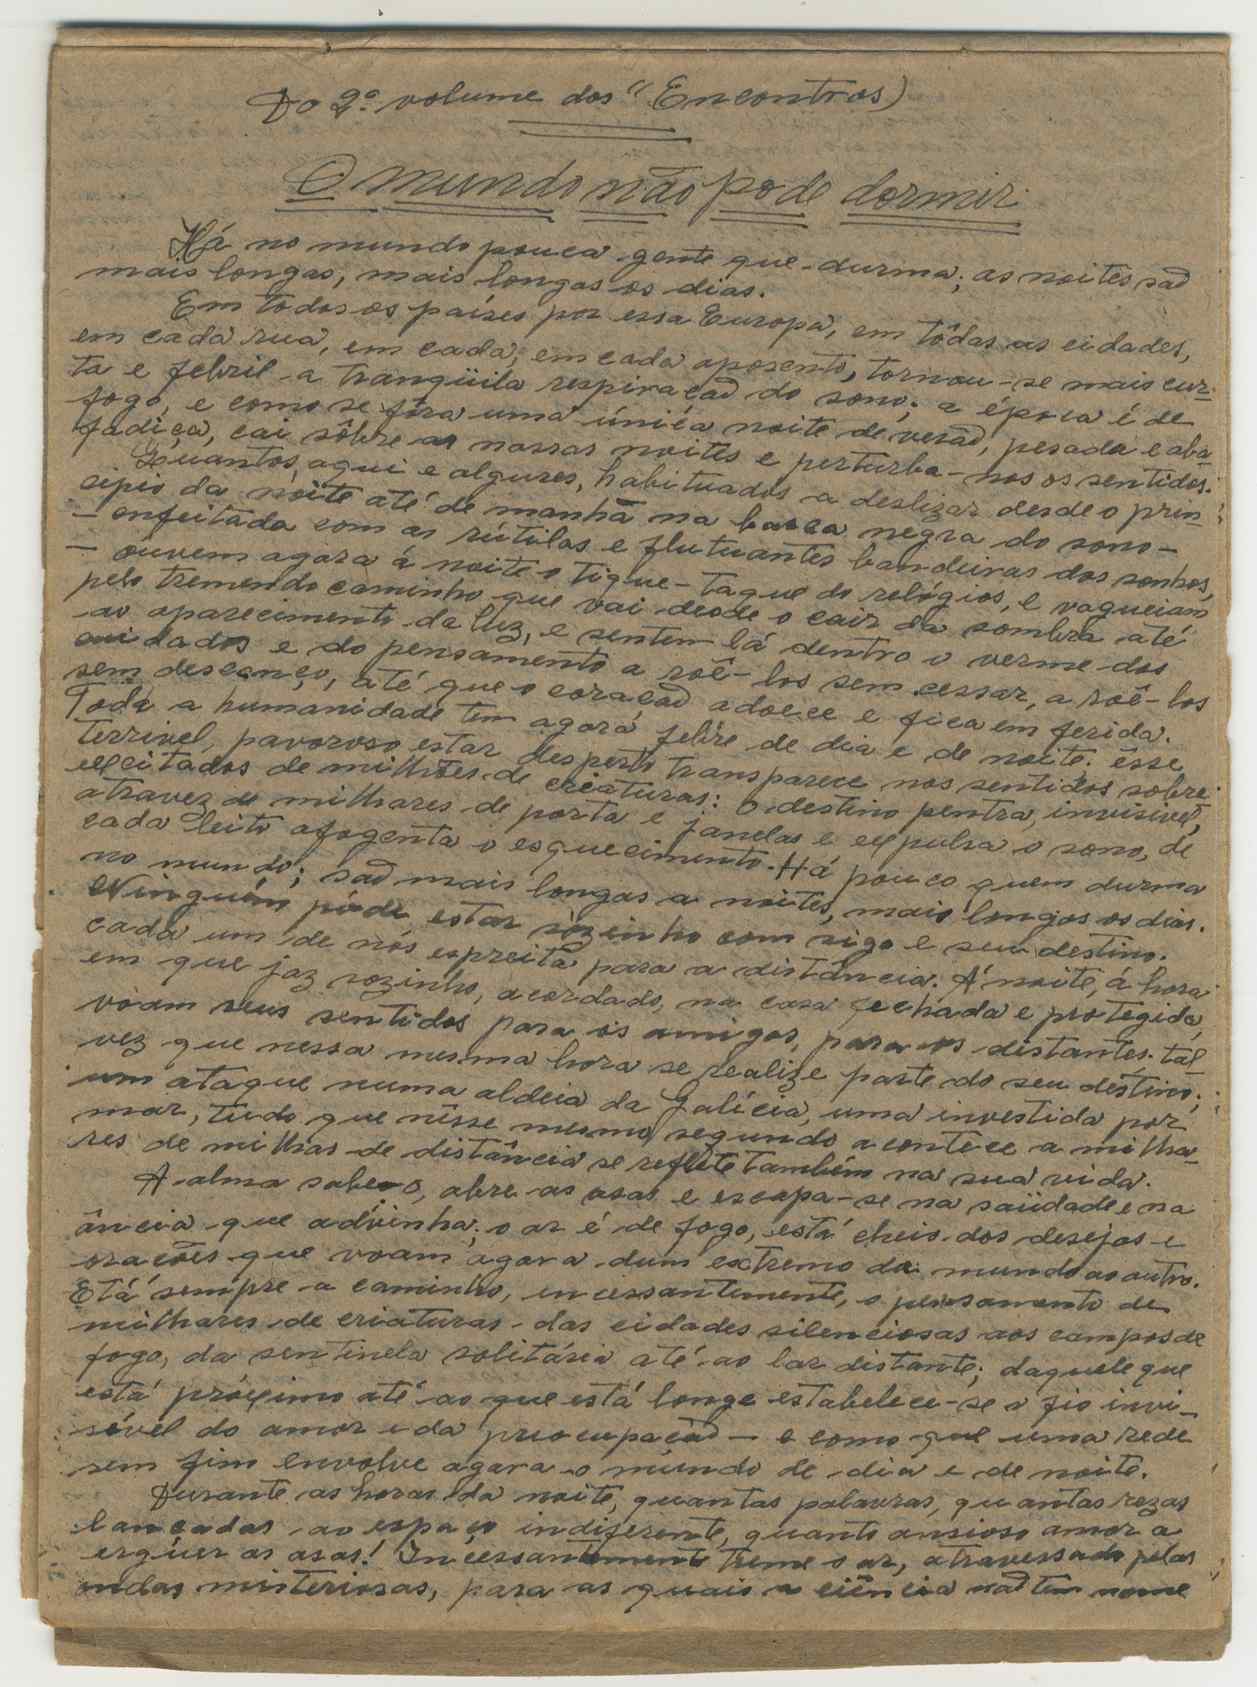 Do 2º volume dos "Encontros)
O mundo não pode dormir
Há no mundo pouca gente que durma; as noites são
mais longas, mais longas os dias.
Em todos os países por essa Europa, em tôdas as cidades,
em cada rua, em cada, em cada aposento, tornou-se mais cur-
ta e febril a tranqüila respiração do sono; a época é de
fogo, e como se fôra uma única noite de verão, pesada e aba-
fadiça, cai sôbre as nossas noites e perturba-nos os sentidos.
Quantos, aqui e algures, habituados a deslizar desde o prin-
cipio da noite até de manhã na barca negra do sono -
- enfeitada com as rútilas e flutuantes bandeiras dos sonhos,
- ouvem agora á noite o tique-taque do relógios, e vagueiam
pelo tremendo caminho que vai desde o cair da sombra até
ao aparecimento da luz, e sentem lá dentro o verme dos
cuidados e do pensamento a roê-los sem cessar, a roê-los
sem descanço, até que o coração adoece e fica em ferida.
Toda a humanidade tem agora febre de dia e de noite: êsse
terrivel, pavoroso estar desperto transparece nos sentidos sobre-
excitados de milhões de creaturas: o destino pentra, invisivel,
atravez de milhares de porta e janelas e expulsa o sono, de
cada leito afogenta o esquecimento. Há pouco quem durma
no mundo; são mais longas a noites, mais longos os dias.
Ninguém póde estar sòzinho com sigo e seu destino.
cada um de nós espreita para a distância. Á noite, á hora
em que jaz sozinho, acordado, na casa fechada e protegida,
voam seus sentidos para os amigos, para os distantes. tal
vez que nessa mesma hora se realize parte do seu destino;
um ataque numa aldeia da Galícia, uma investida por
mar, tudo que nêsse mesmo segundo acontece a milha-
res de milhas de distância se reflete também na sua vida.
A alma sabe-o, abre as asas e escapa-se na saüdade e na
ância que adivinha; o ar é de fogo, está cheio dos desejos e
orações que voam agora dum extremo da mundo ao outro.
Etá sempre a caminho, incessantemente, o pensamento de
milhares de criaturas - das cidades silenciosas aos campos de
fogo, da sentinela solitária até ao lar distante; daquele que
está próximo até ao que está longe estabelece-se o fio invi-
sível do amor e da preocupação - e como que uma rede
sem fim envolve agora o mundo de dia e de noite.
Durante as horas da noite, quantas palavras, quantas rezas
lançadas ao espaço indiferente, quanto ansioso amor a
erguer as asas! Incessantemente treme o ar, atravessado pelas
ondas misteriosas, para as quais a ciência não tem nome